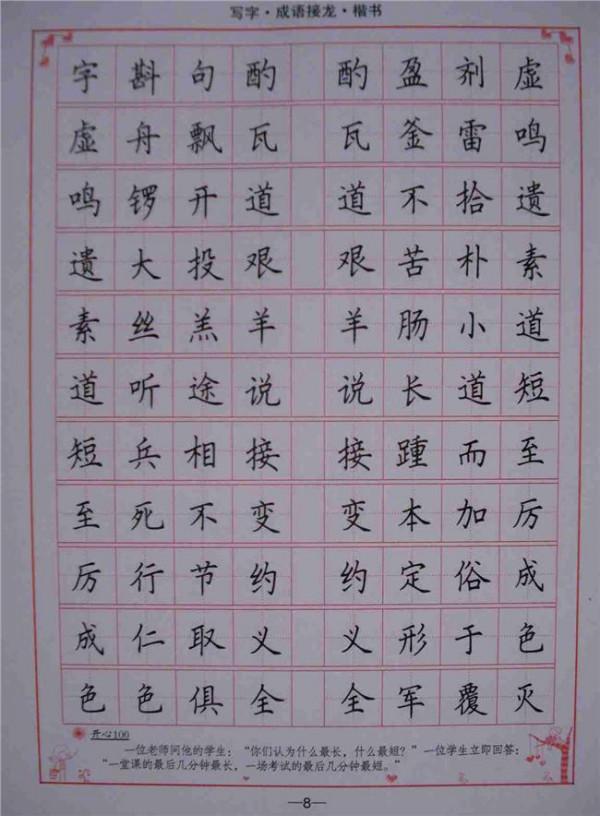 写字·成语接龙·楷书
字斟句酌 酌盈剂虚
虚舟飘瓦 瓦釜雷鸣
鸣锣开道 道不拾遗
遗大投艰 艰苦朴素
素丝羔羊 羊肠小道
道听途说 说长道短
短兵相接 接踵而至
至死不变 变本加厉
厉行节约 约定俗成
成仁取义 义形于色
色色俱全 全军覆灭
开心100
一位老师问他的学生：“你们认为什么最长，什么最短？”一位学生立即回答：
“一堂课的最后几分钟最长，一场考试的最后几分钟最短。”
—8—